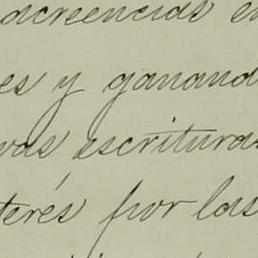 acreencias en
es y ganand
vas escritura
terés por las